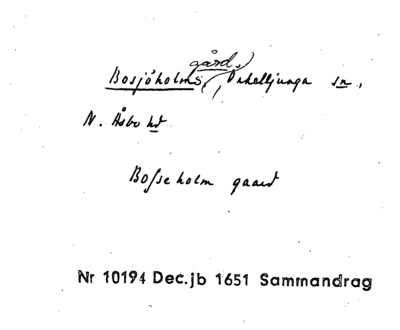 Bosjöholms gård, Örkelljunga sn.,
N. Åsbo hd
Bosseholm gaard
Nr 10194 Dec.jb 1651 Sammandrag